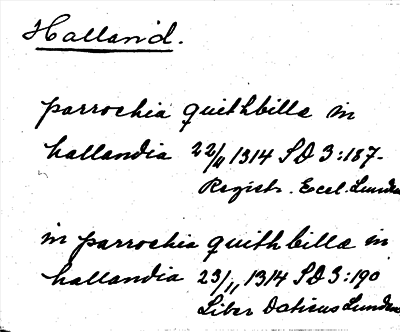 Halland.
parrochia quithbille in
hallandia 22/11 1314 SD 3:187-
Registr. Eccl. Lunden
in parrochia quithbille in
hallandia 23/11 1314 SD 3:190
Liber Daticus Lunden